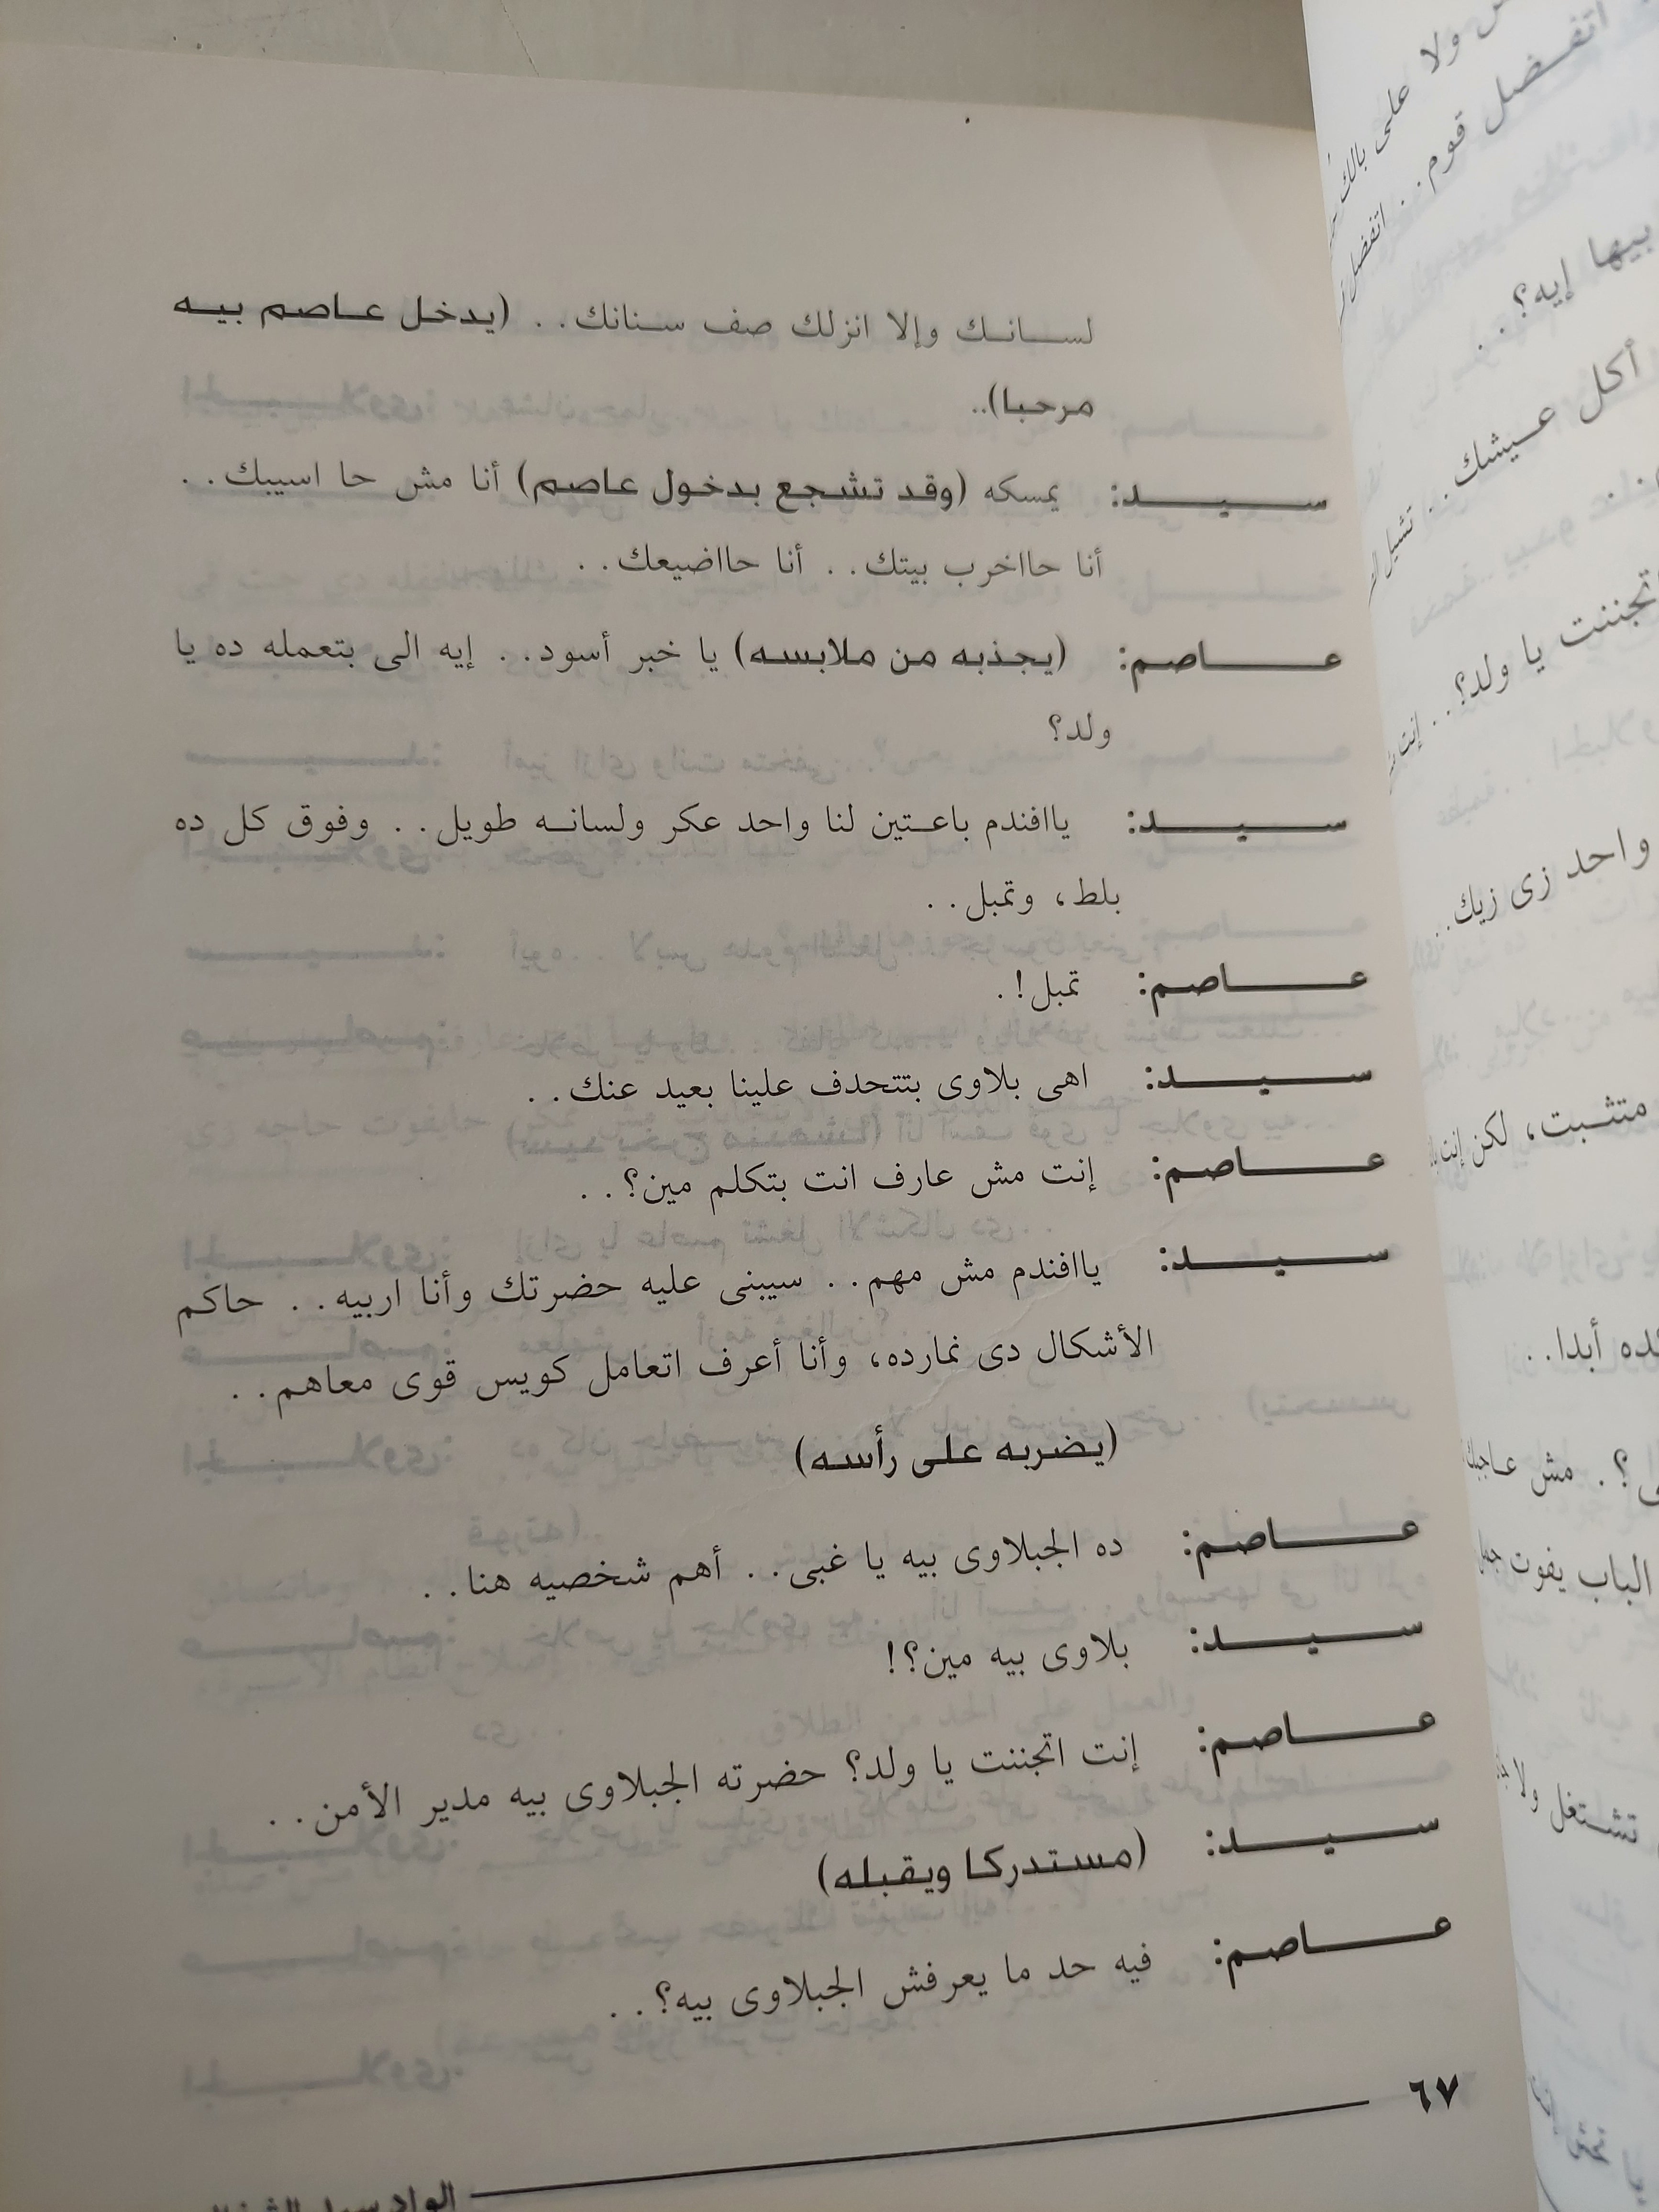 لسانك وإلا انزلك صف سنانك.. (يدخل عاصم بيه
مرحبا)..
سيد: يمسكه (وقد تشجع بدخول عاصم) أنا مش حا اسيبك..
أنا حااخرب بيتك.. أنا حااضيعك..
عاصم: (يجذبه من ملابسه) يا خبر أسود.. إيه الى بتعمله ده يا
ولد؟
سيد: ياافندم باعتين لنا واحد عكر ولسانه طويل.. وفوق كل ده
بلط، وتمبل..
عاصم: تمبل!.
سيد: اهى بلاوى بتتحدف علينا بعيد عنك..
عاصم: إنت مش عارف انت بتكلم مين؟..
سيد: ياافندم مش مهم.. سيبنى عليه حضرتك وأنا اربيه.. حاكم
الأشكال دى نمارده، وأنا أعرف اتعامل كويس قوى معاهم..
(يضربه على رأسه)
عاصم: ده الجبلاوى بيه يا غبى.. أهم شخصيه هنا..
سيد: بلاوى بيه مين؟!
عاصم: إنت اتجننت يا ولد؟ حضرته الجبلاوى بيه مدير الأمن..
سيد: (مستدركا ويقبله)
عاصم: فيه حد ما يعرفش الجبلاوى بيه؟..
٦٧
الواد سيد
ولا على بالك
اتفضل قوم.. اتفضل
بيها إيه؟..
أكل عيشك.. تشيل
اتجننت يا ولد؟.. إنت
واحد زى زيك..
متثبت، لكن إنت
كده أبدا..
؟. مش عاجبك
الباب يفوت جمل
تشتغل ولا